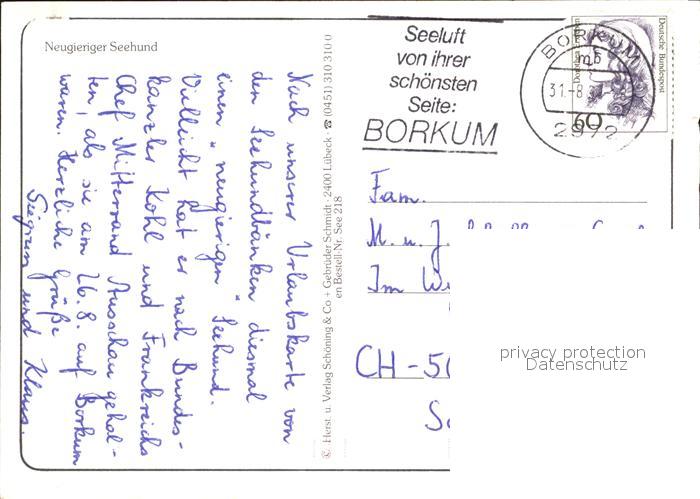 Neugieriger Seehund
Nach unserer Urlaubskarte von
den Seehundbänken diesmal
einen „neugierigen" Seehund.
Vielleicht hat er nach Bundes-
kanzler Kohl und Frankreichs
Chef Mitterrand Ausschau gehal-
ten, als sie am 26.8. auf Borkum
waren. Herzliche Grüße
Siegrun und Klaus.
© Herst. u. Verlag Schöning & Co + Gebrüder Schmidt · 2400 Lübeck · ☎ (0451) 310 310 0
en Bestell-Nr. See 218
Seeluft
von ihrer
schönsten
Seite:
BORKUM
BORKUM
mb
31.-8.
2972
Deutsche Bundespost
60
Fam.
M. u. J.
Im
CH-50
privacy protection
Datenschutz